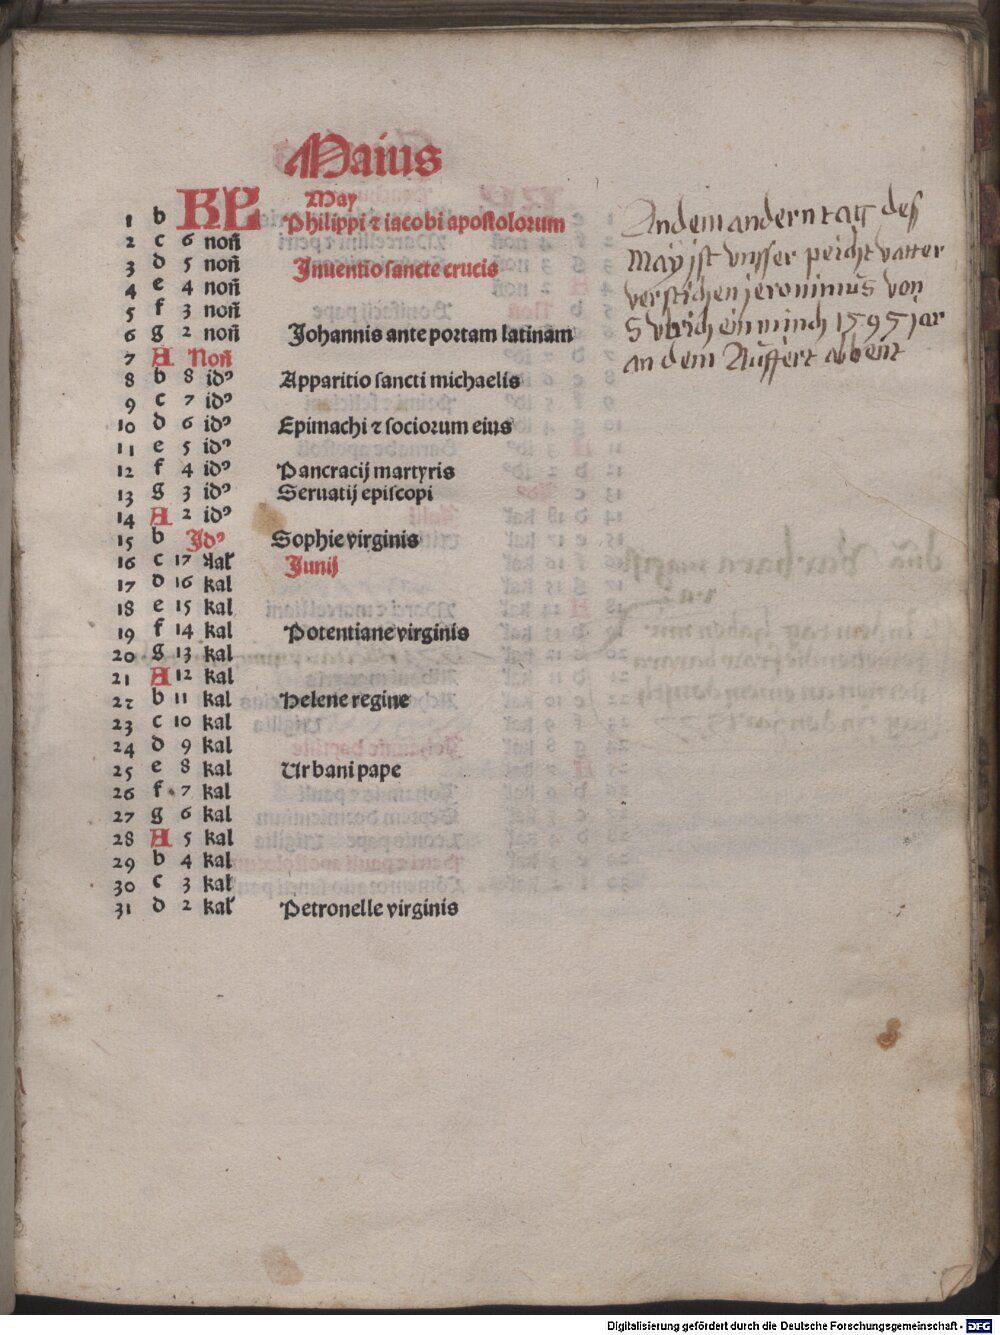 Maius
KL May
1 b Philippi ⁊ iacobi apostolorum
2 c 6 non̄
3 d 5 non̄ Inuentio sancte crucis
4 e 4 non̄
5 f 3 non̄
6 g 2 non̄ Johannis ante portam latinam
7 A Non̄
8 b 8 idꝰ Apparitio sancti michaelis
9 c 7 idꝰ
10 d 6 idꝰ Epimachi ⁊ sociorum eius
11 e 5 idꝰ
12 f 4 idꝰ Pancracij martyris
13 g 3 idꝰ Seruatij episcopi
14 A 2 idꝰ
15 b Jdꝰ Sophie virginis
16 c 17 kal Junij
17 d 16 kal
18 e 15 kal
19 f 14 kal Potentiane virginis
20 g 13 kal
21 A 12 kal
22 b 11 kal Helene regine
23 c 10 kal
24 d 9 kal
25 e 8 kal Urbani pape
26 f 7 kal
27 g 6 kal
28 A 5 kal
29 b 4 kal
30 c 3 kal
31 d 2 kal Petronelle virginis
An dem andern tag des
May ist vnsser peicht vatter
verstichen jeronimus von
ein minch 1595 jar
an dem Auffert abbent
Digitalisierung gefördert durch die Deutsche Forschungsgemeinschaft - DFG